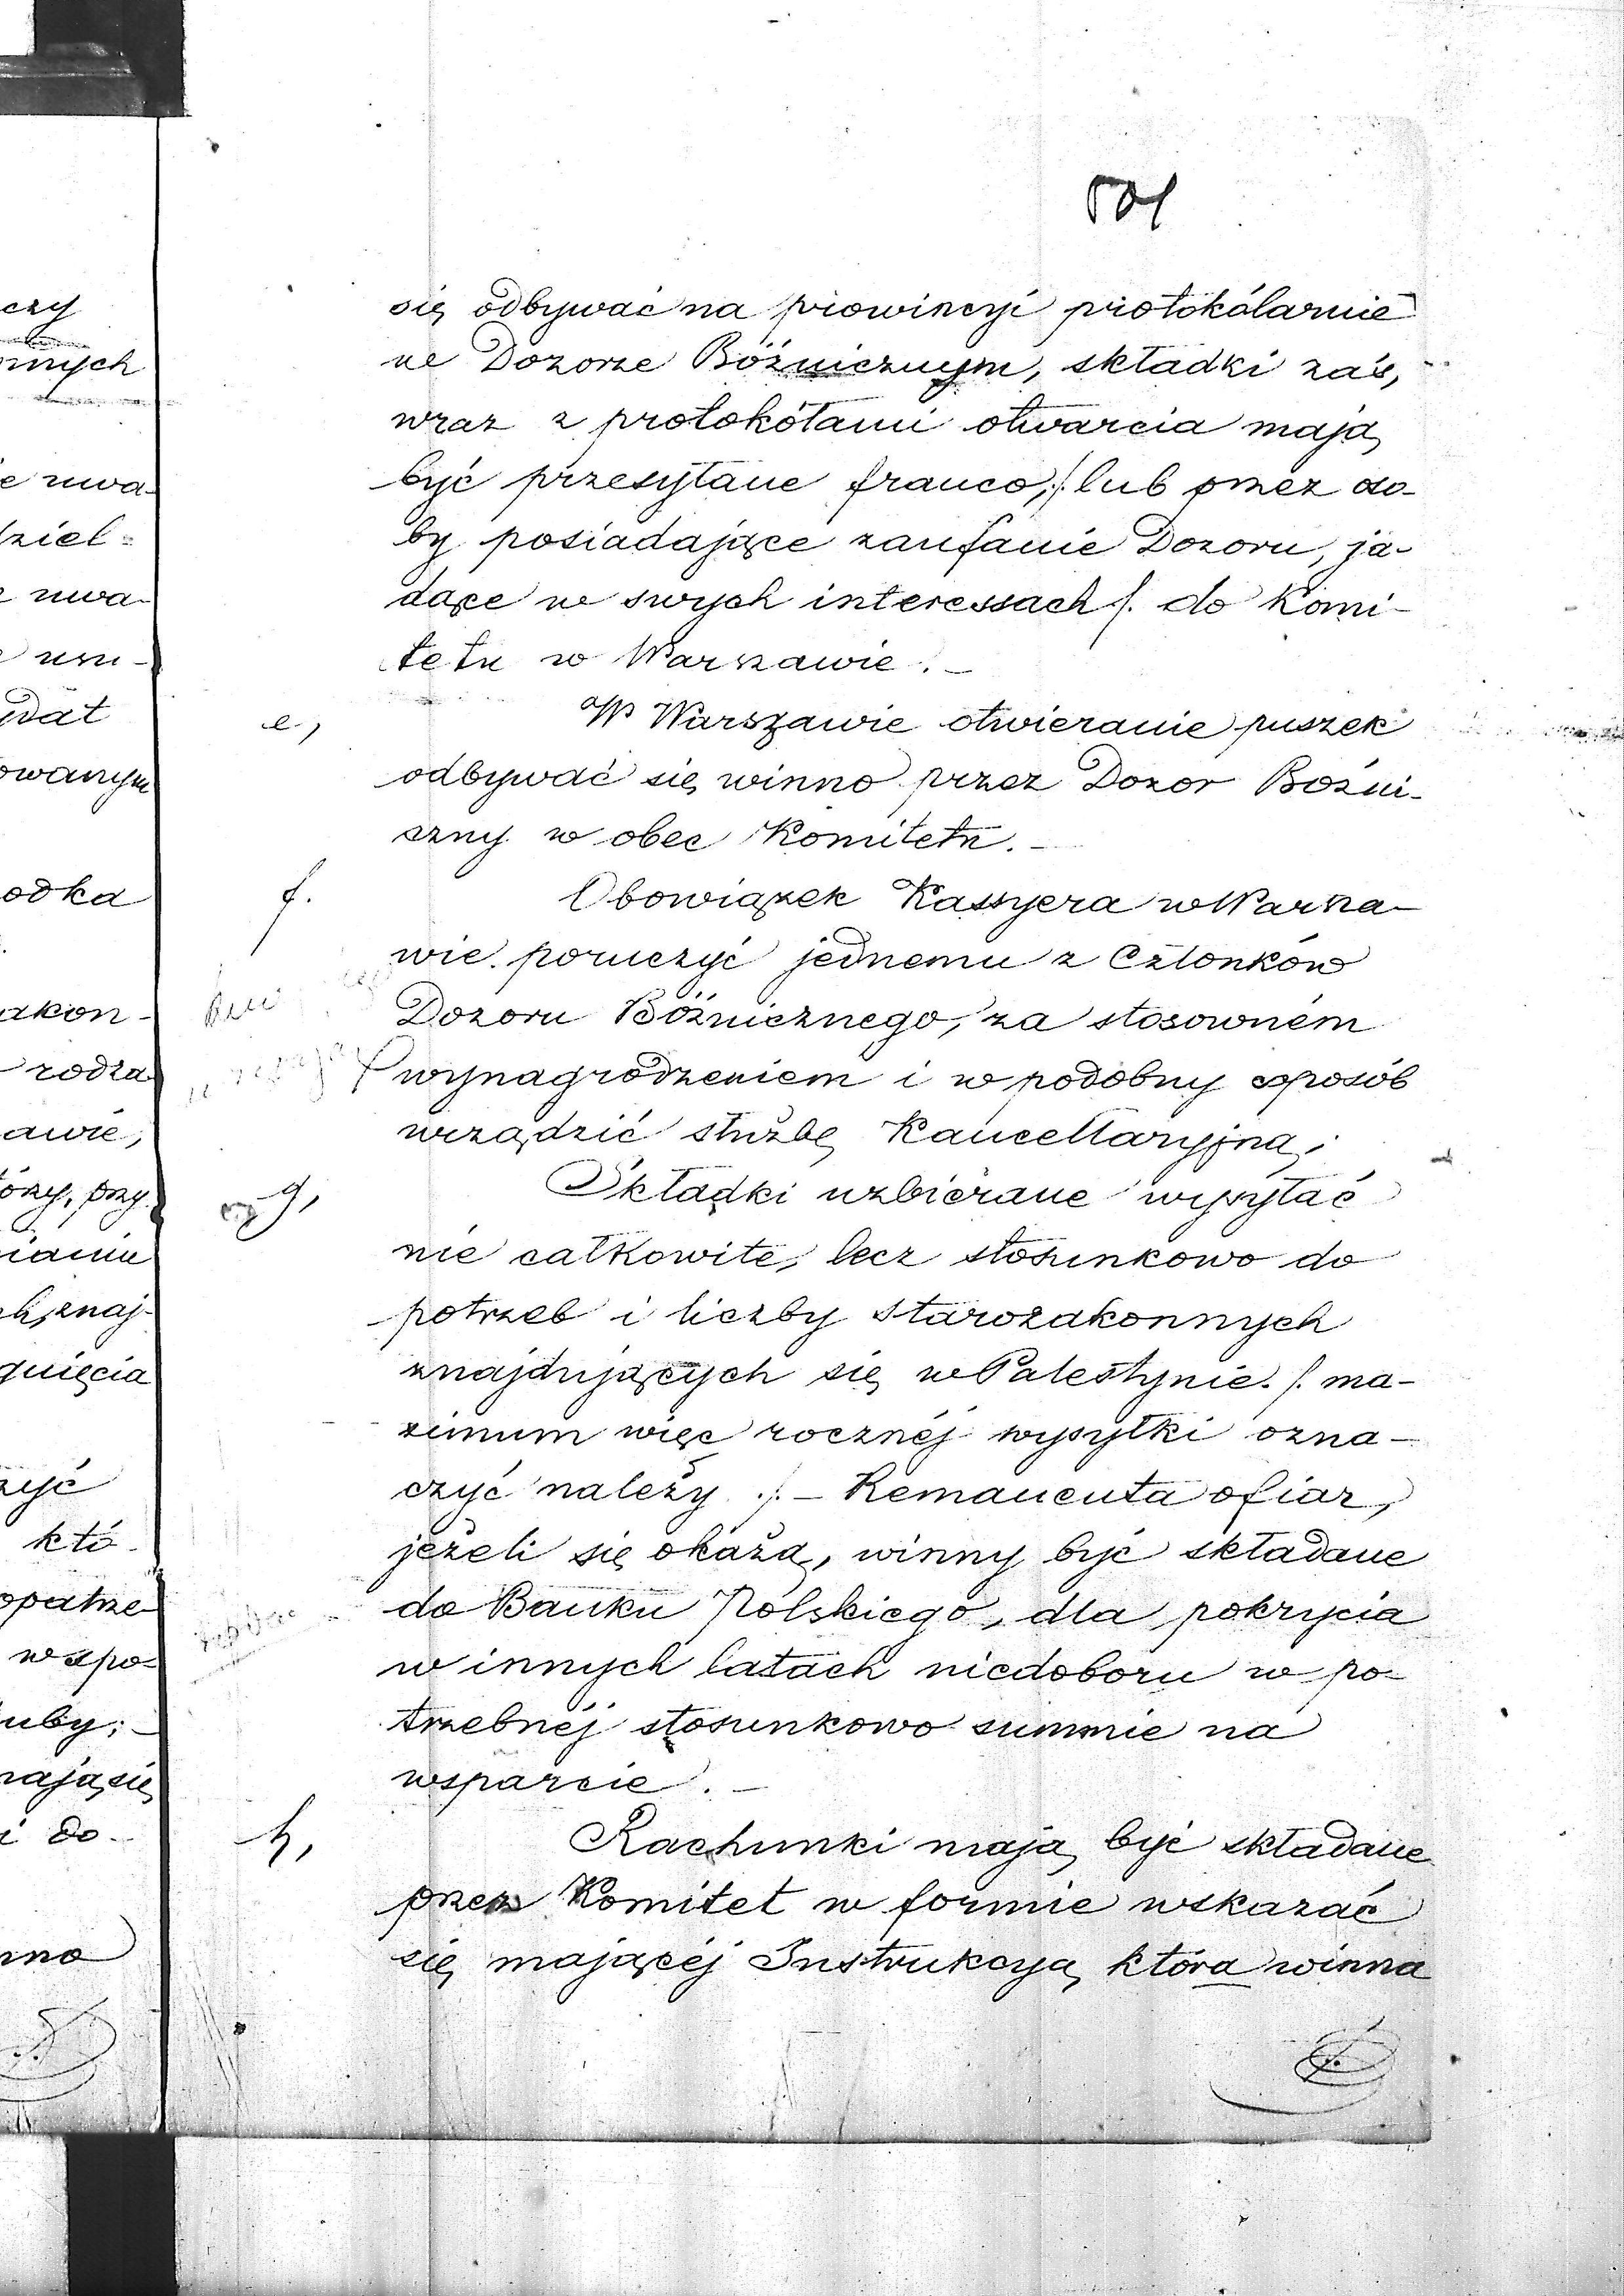 501
się odbywać na prowincyi protokólarnie
we Dozorze Bóźnicznym, składki zaś,
wraz z protokółami otwarcia mają
być przesyłane franco, /. lub przez oso-
by posiadające zaufanie Dozoru, ja-
dące w swych interessach /. do Komi-
tetu w Warszawie. –
e, W Warszawie otwieranie puszek
odbywać się winno przez Dozor Bożni-
czny w obec Komitetu. –
f. Obowiązek Kassyera w Warsza-
wie poruczyć jednemu z Członków
Dozoru Bóźnicznego, za stosowném
wynagrodzeniem i w podobny sposób
urządzić służbę Kancellaryjną.
g, Składki uzbierane wysyłać
nie całkowite, lecz stosunkowo do
potrzeb i liczby starozakonnych
znajdujących się w Palestynie. /. ma-
ximum więc rocznéj wysyłki ozna-
czyć należy ./. – Remanenta ofiar,
jeżeli się okażą, winny być składane
do Banku Polskiego, dla pokrycia
w innych latach niedoboru w po-
trzebnéj stosunkowo summie na
wsparcie. –
h, Rachunki mają być składane
przez Komitet w formie wskazać
się mającéj Instrukcyą, która winna